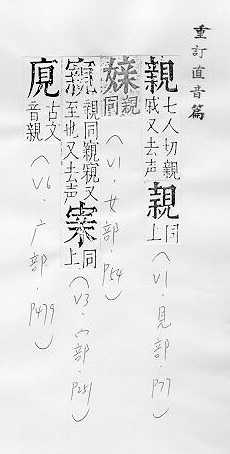 重訂直音篇
親 七人切親戚又去声 同上 (V1·見部·P77)
親同 (V1·女部·P54)
寴 親同 又至也又去声 同上 (V3·宀部·P251)
古文音親 (V6·广部·P479)